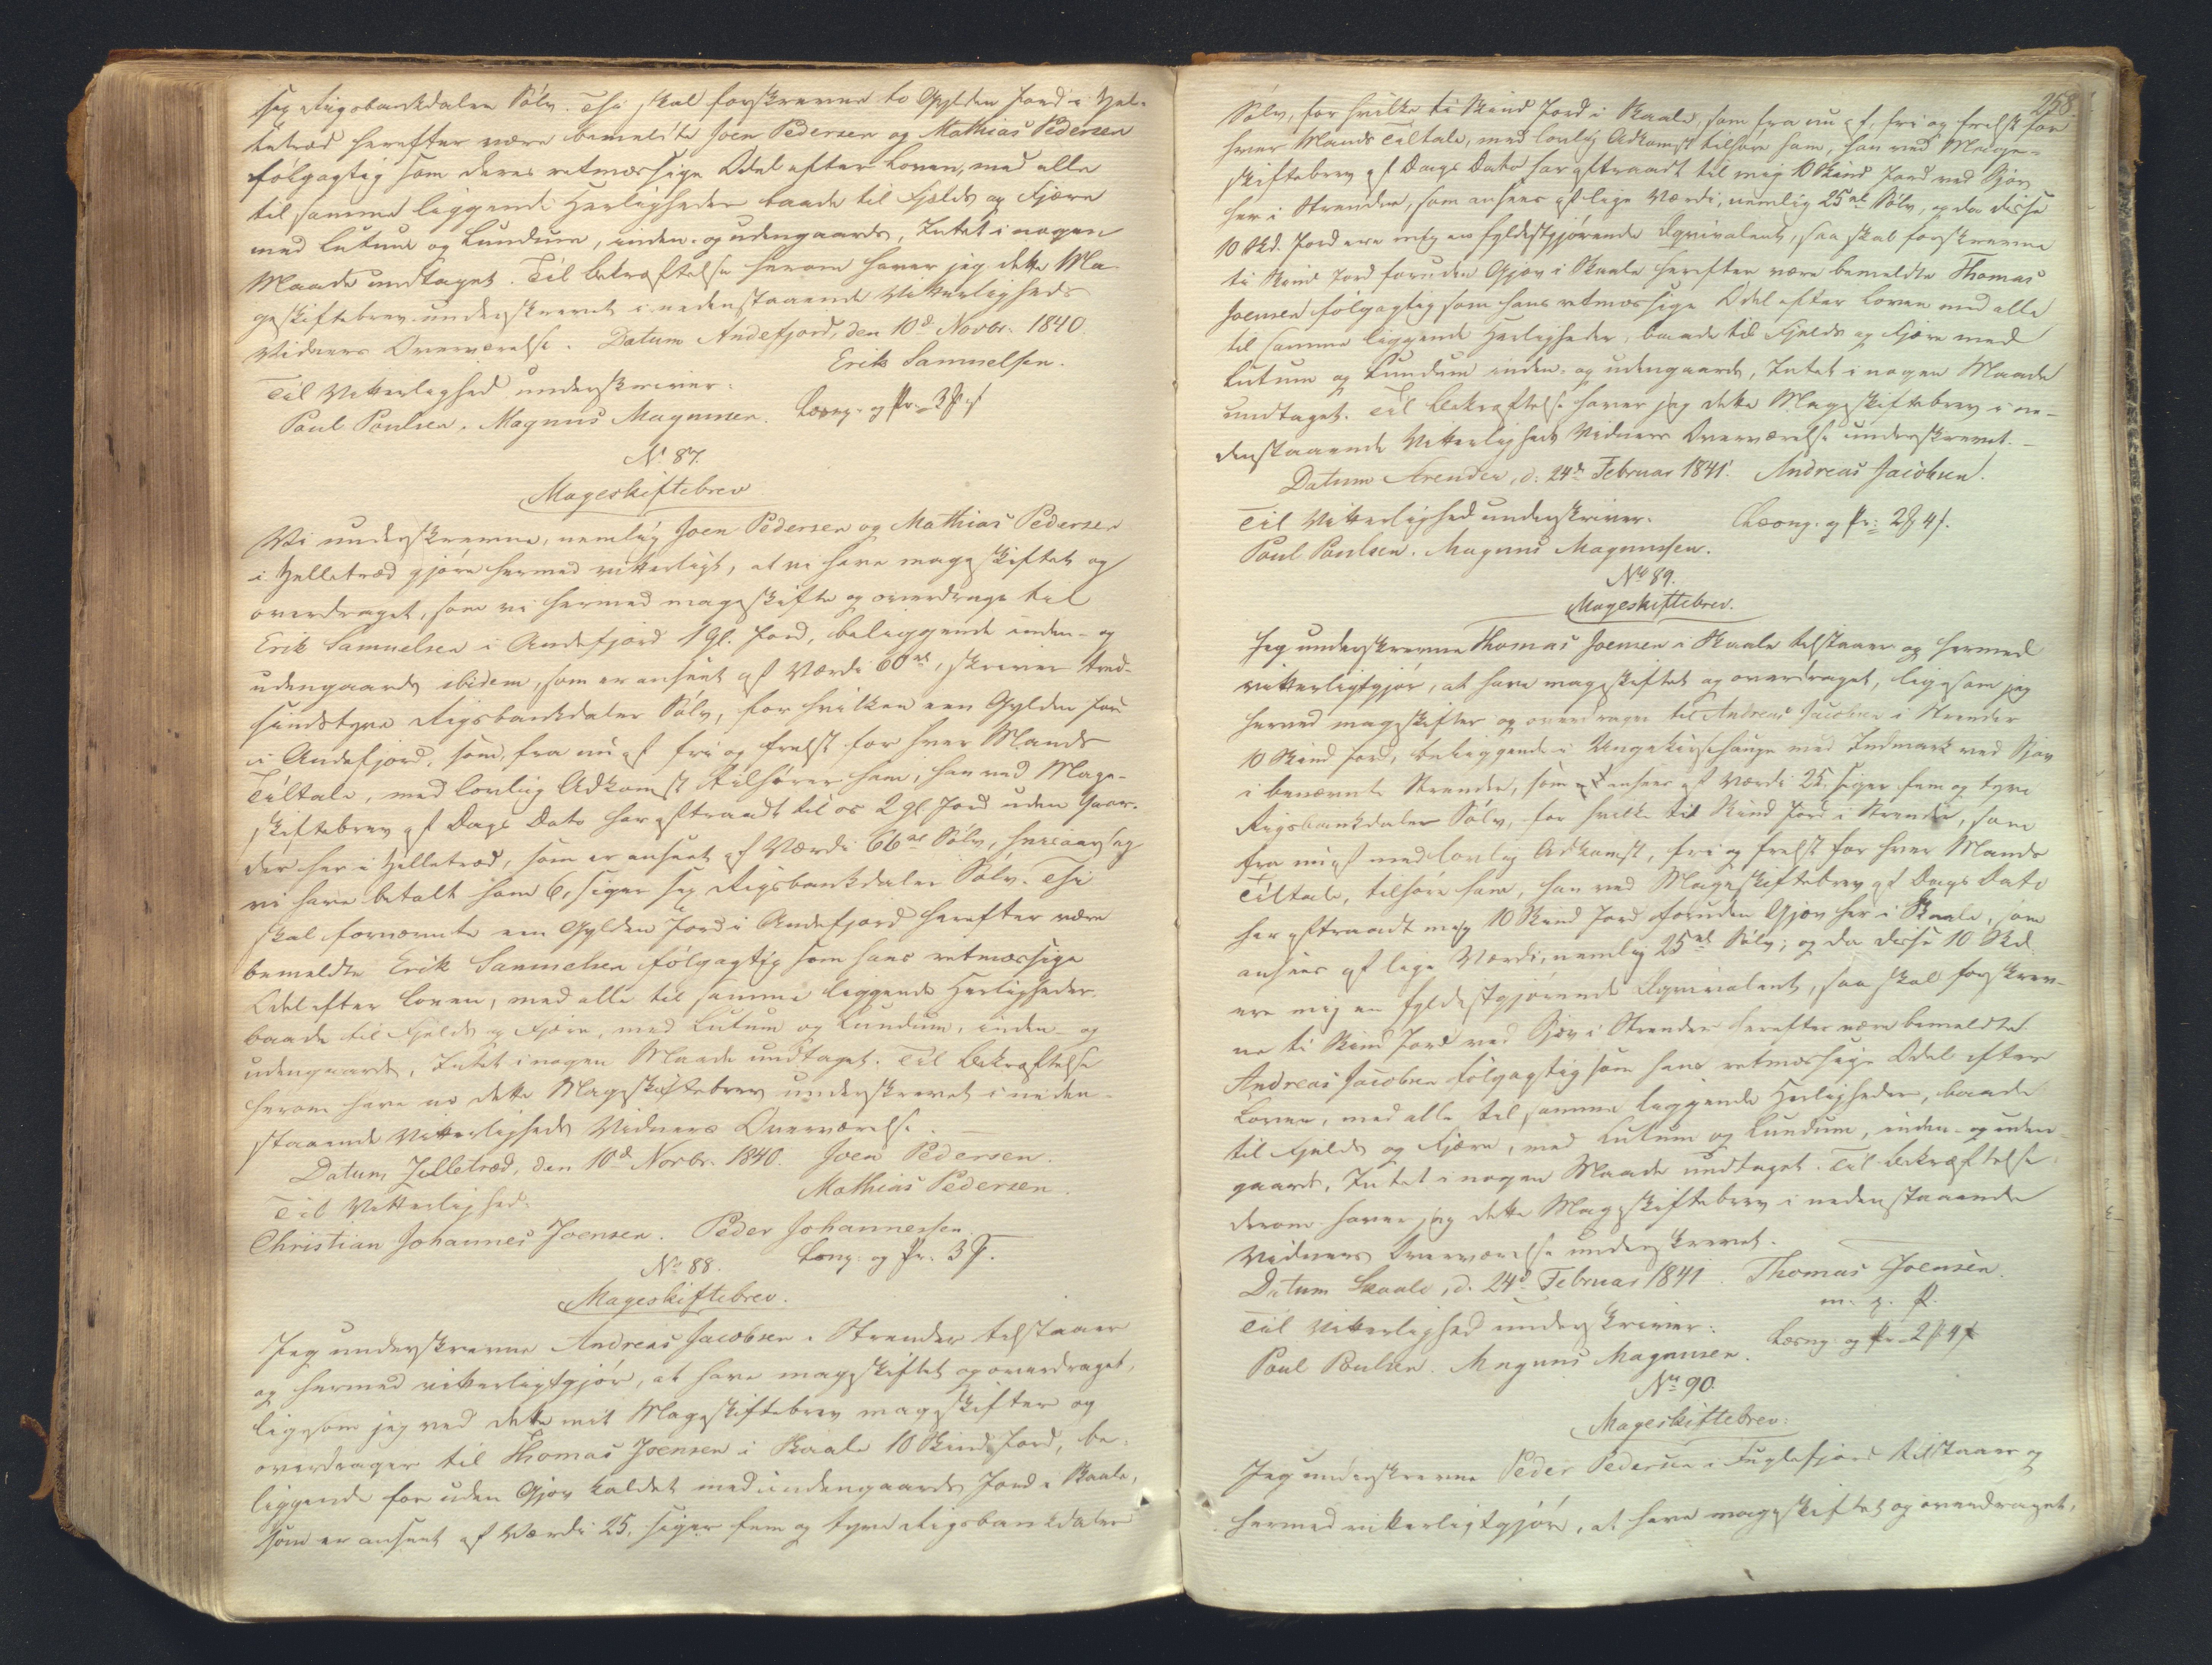 sex Rigsbankdaler Sølv. Thi skal forskrevne to Gylden Jord i Hel-
letræd herefter være bemeldte Joen Pedersen og Mathias Pedersen
følgagtig som deres retmæssige Odel efter Loven, med alle
til samme liggende Herligheder baade til Fjelds og Fjære
med Lutum og Lundum, inden- og udengaards, Intet i nogen
Maade undtaget. Til Bekræftelse herom haver jeg dette Ma-
geskiftebrev underskrevet i nedenstaaende Vitterligheds
Vidners Overværelse. Datum Andefjord, den 10d Novbr. 1840.
Erik Samuelsen.
Til Vitterlighed underskriver:
Paul Poulsen. Magnus Magnusen. Læsng. og Pr. 3
No 87.
Mageskiftebrev
Vi underskrevne, nemlig Joen Pedersen og Mathias Pedersen
i Helletræd gjøre hermed vitterligt, at vi have mageskiftet og
overdraget, som vi hermed mageskifte og overdrage til
Erik Samuelsen i Andefjord 1 Gl. Jord, beliggende inden- og
udengaards ibidem, som er anseet af Værdi 60 , skriver tred-
sindstyve Rigsbankdaler Sølv, for hvilken een Gylden Jord
i Andefjord, som fra nu af fri og frelst for hver Mands
Tiltale, med lovlig Adkomst tilhører ham, han ved Mage-
skiftebrev af Dags Dato har aftraadt til os 2 Gl Jord uden Gaar-
der her i Helletræd, som er anseet af Værdi 66 Sølv,
vi have betalt ham 6, siger sex Rigsbankdaler Sølv. Thi
skal fornævnte een Gylden Jord i Andefjord herefter være
bemeldte Erik Samuelsen følgagtig som hans retmæssige
Odel efter Loven, med alle til samme liggende Herligheder
baade til Fjelds og Fjære, med Lutum og Lundum, inden- og
udengaards, Intet i nogen Maade undtaget. Til Bekræftelse
herom have vi dette Mageskiftebrev underskrevet i neden-
staaende Vitterligheds Vidners Overværelse.
Datum Helletræd, den 10d Novbr. 1840. Joen Pedersen.
Mathias Pedersen.
Til Vitterlighed:
Christian Johannes Joensen. Peder Johannessen
Læsng. og Pr. 3
No 88.
Mageskiftebrev.
Jeg underskrevne Andreas Jacobsen i Strender tilstaaer
og hermed vitterligtgjør, at have mageskiftet og overdraget,
ligesom jeg ved dette mit Mageskiftebrev mageskifter og
overdrager til Thomas Joensen i Skaale 10 Skind Jord, be-
liggende for uden Gjøv kaldet med indengaards Jord i Skaale,
som er anseet af Værdi 25, siger fem og tyve Rigsbankdaler
258.
Sølv, for hvilke ti Skind Jord i Skaale, som fra nu af, fri og frelst for
hver Mands Tiltale, med lovlig Adkomst tilhøre ham, han ved Mage-
skiftebrev af Dags Dato har aftraadt til mig 10 Skind Jord ved Sjøv
her i Strender, som ansees af lige Værdi, nemlig 25 Sølv, og da disse
10 Skd. Jord ere mig en fyldestgjørende Eqvivalent, saa skal forskrevne
ti Skind Jord foruden Gjøv i Skaale herefter være bemeldte Thomas
Joensen følgagtig som hans retmæssige Odel efter Loven med alle
til samme liggende Herligheder, baade til Fjelds og Fjære med
Lutum og Lundum inden- og udengaards, Intet i nogen Maade
undtaget. Til Bekræftelse haver jeg dette Mageskiftebrev i ne-
denstaaende Vitterligheds Vidners Overværelse underskrevet.
Datum Strender, d. 24d Februar 1841. Andreas Jacobsen.
Til Vitterlighed underskriver. Læsng. og Pr: 2 4
Paul Poulsen. Magnus Magnussen.
No 89.
Mageskiftebrev.
Jeg underskrevne Thomas Joensen i Skaale tilstaaer og hermed
vitterligtgjør, at have mageskiftet og overdraget, ligesom jeg
herved mageskifter og overdrager til Andreas Jacobsen i Strender
10 Skind Jord, beliggende i med Indmark ved Sjøv
i benævnte Strender, som ansees af Værdi 25, siger fem og tyve
Rigsbankdaler Sølv, for hvilke ti Skind Jord i Strender, som
fra nu af med lovlig Adkomst, fri og frelst for hver Mands
Tiltale, tilhøre ham, han ved Mageskiftebrev af Dags Dato
har aftraadt mig 10 Skind Jord foruden Gjøv her i Skaale, som
ansees af lige Værdi, nemlig 25 Sølv; og da disse 10 Skd.
ere mig en fyldestgjørende Eqvivalent, saa skal forskrev-
ne ti Skind Jord ved Sjøv i Strender herefter være bemeldte
Andreas Jacobsen følgagtig som hans retmæssige Odel efter
Loven, med alle til samme liggende Herligheder, baade
til Fjelds og Fjære, med Lutum og Lundum, inden- og uden-
gaards, Intet i nogen Maade undtaget. Til Bekræftelse
derom haver jeg dette Mageskiftebrev i nedenstaaende
Vidners Overværelse underskrevet.
Datum Skaale, d. 24d Februar 1841. Thomas Joensen.
m. p. P.
Til Vitterlighed underskriver:
Paul Poulsen. Magnus Magnusen. Læsng. og Pr. 2 4
No 90.
Mageskiftebrev.
Jeg underskrevne Peder Pedersen i Fuglefjord tilstaaer og
hermed vitterligtgjøre, at have mageskiftet og overdraget,